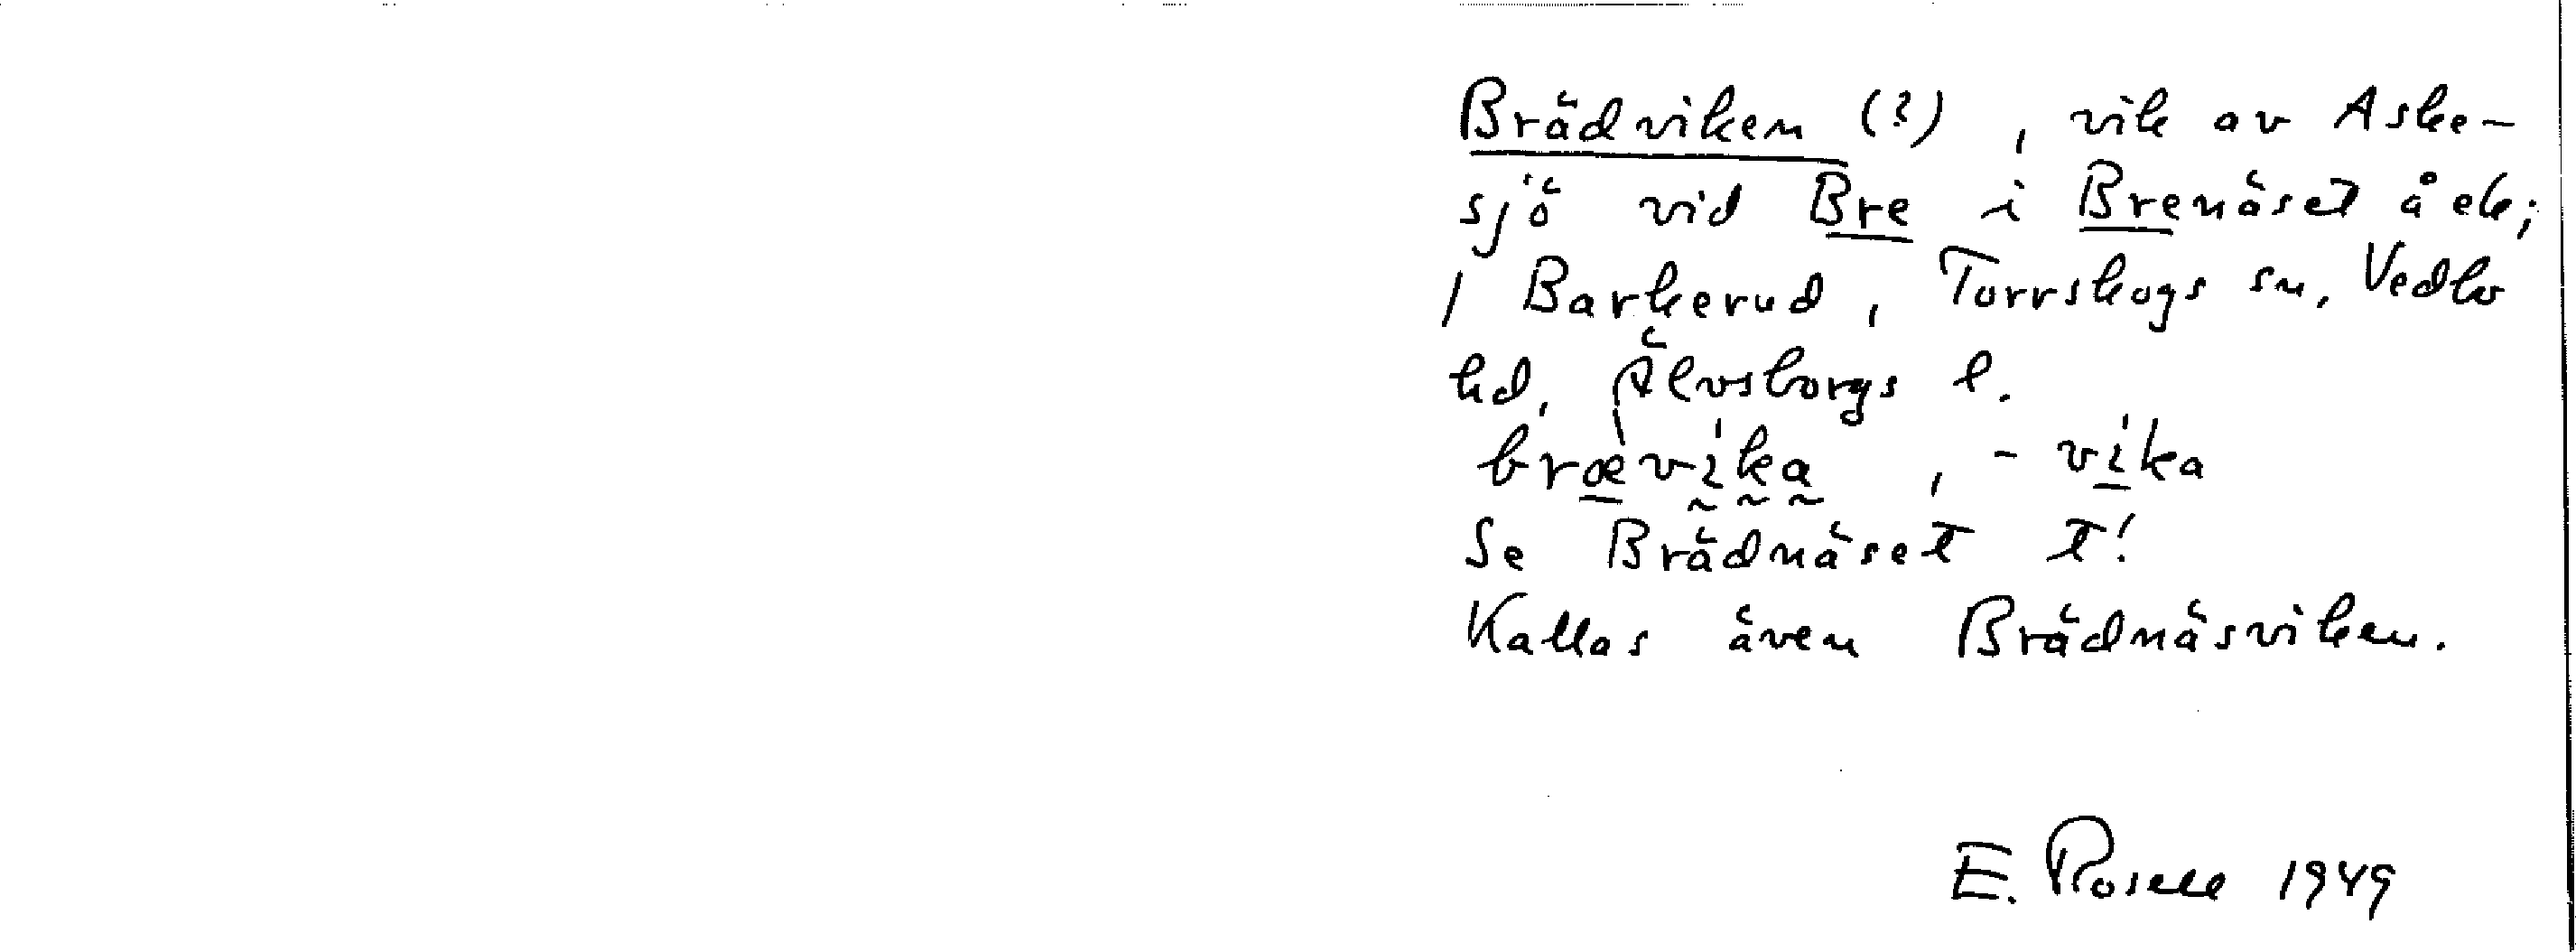 Brädviken (?), vik av Aske-
sjö vid Bre i Brenäset å ek;
/ Barkerud, Torrskogs sn, Vedbo
hd, Älvsborgs l.
brævika, -vika
Se Brädnäset t!
Kallas även Brädnäsviken.
E. Rosell 1949